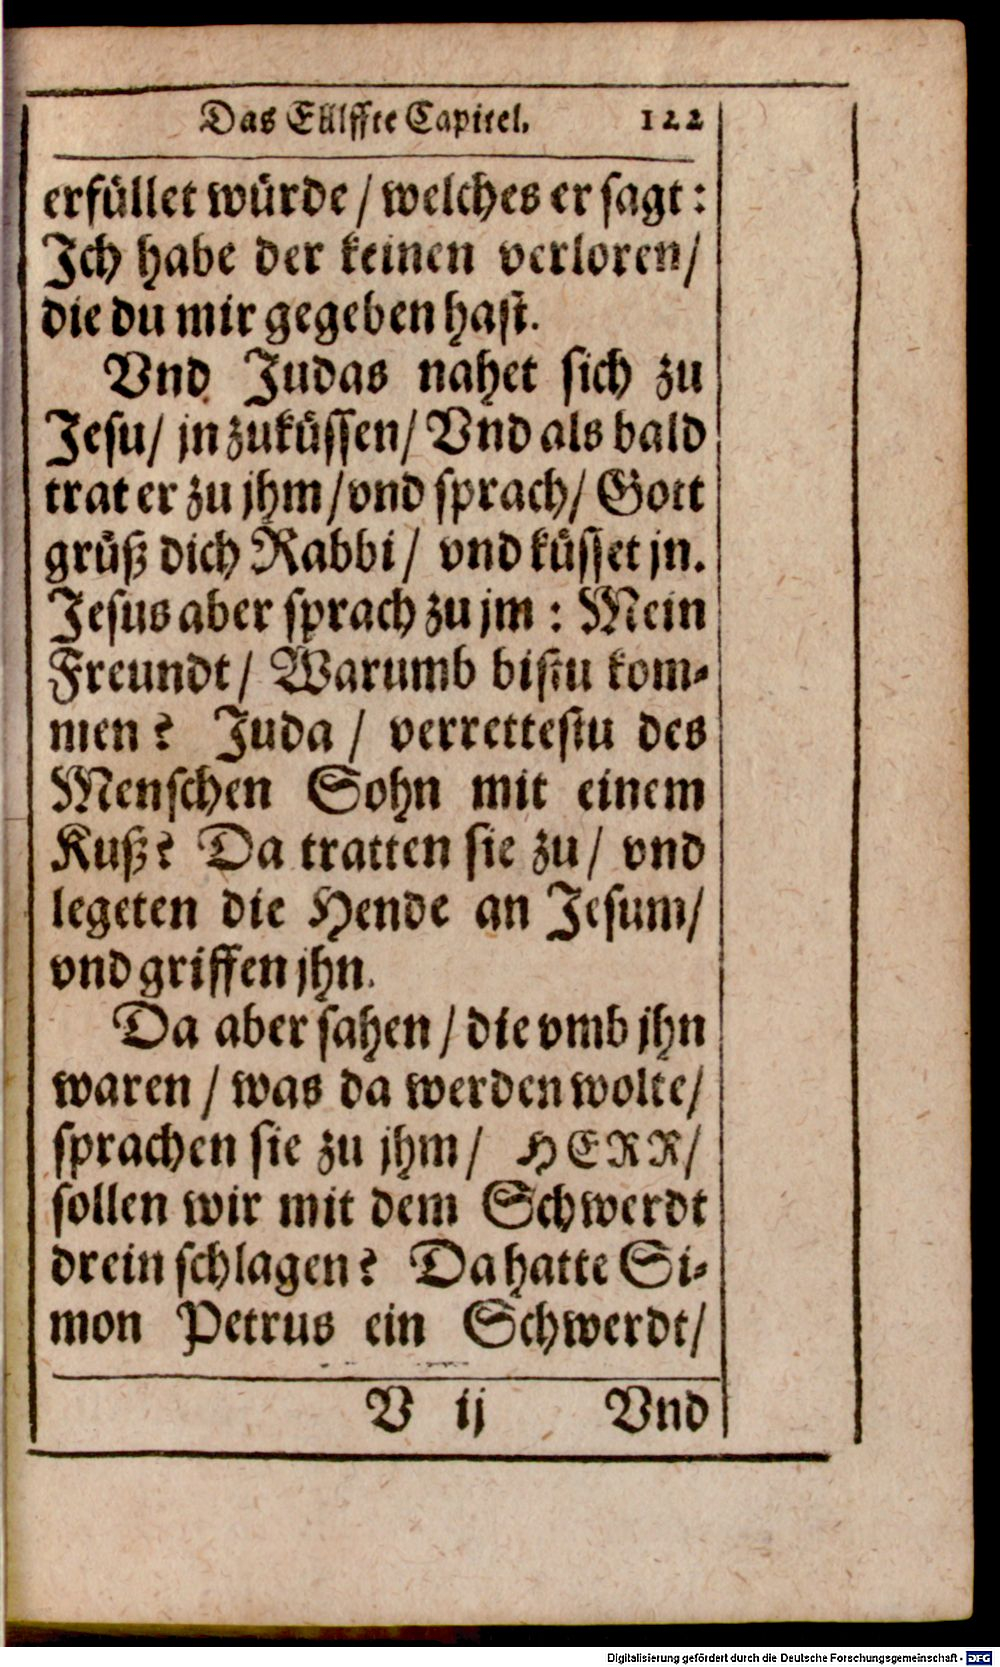 Das Eülffte Capitel. 122
erfüllet würde / welches er sagt:
Ich habe der keinen verloren/
die du mir gegeben hast.
Vnd Judas nahet sich zu
Jesu/ jn zuküssen/ Vnd als bald
trat er zu jhm /vnd sprach/ Gott
grüß dich Rabbi / vnd küsset jn.
Jesus aber sprach zu jm : Mein
Freundt/ Warumb bistu kom-
men? Juda / verrettestu des
Menschen Sohn mit einem
Kuß? Da tratten sie zu / vnd
legeten die Hende an Jesum/
vnd griffen jhn.
Da aber sahen / die vmb jhn
waren / was da werden wolte/
sprachen sie zu jhm/ HERR/
sollen wir mit dem Schwerdt
drein schlagen? Da hatte Si-
mon Petrus ein Schwerdt/
V ij Vnd
Digitalisierung gefördert durch die Deutsche Forschungsgemeinschaft - DFG